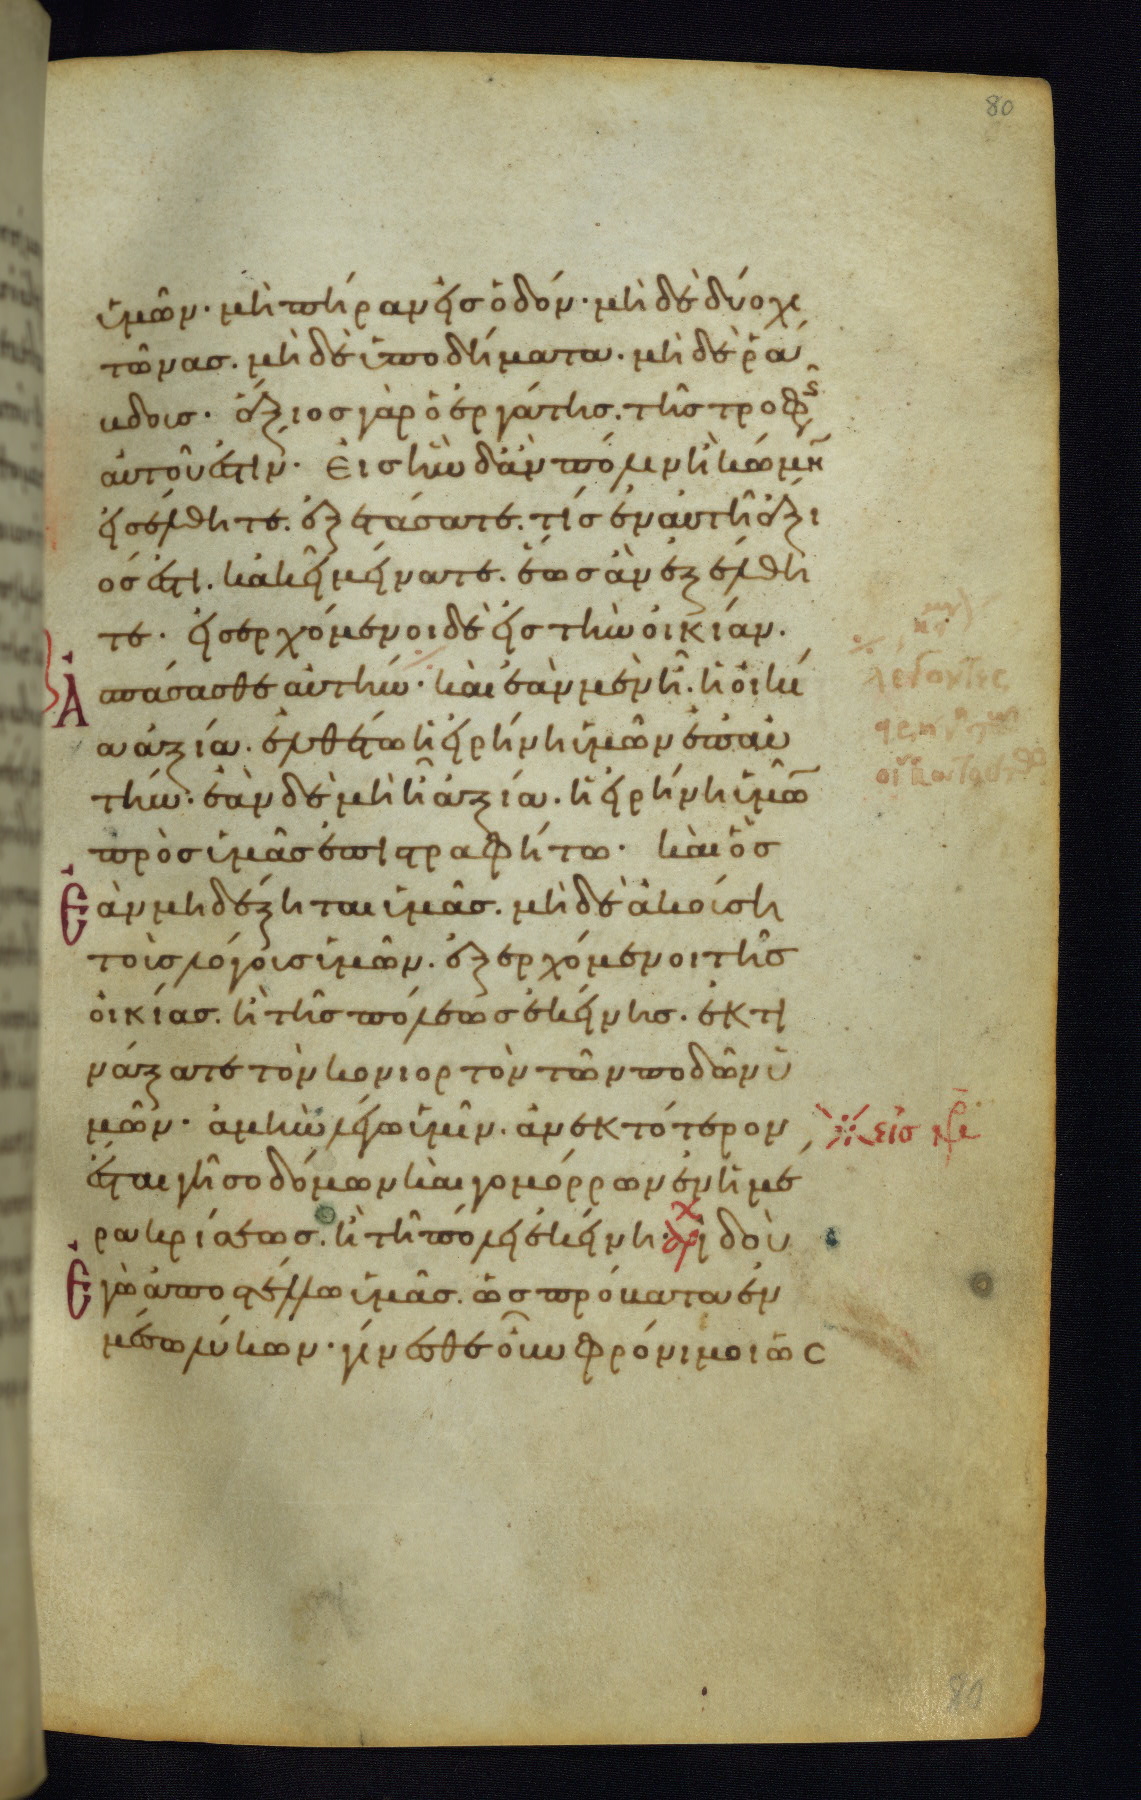 80
ἱμῶν· μὴ πήραν εἰσ ὁδόν· μὴ δὲ δύο χι
τῶνασ. μὴ δὲ ὑποδήματα. μὴ δὲ ῥά
κδοισ· ἄξιοσ γὰρ ὁ ἐργάτησ. τῆσ τροφῆς
αὐτοῦ ἐστίν· Εἰσ ἣν δ' ἂν πόλιν ἢ κώμην
εἰσέλθητε. ἐξετάσατε. τίσ ἐν αὐτῆ ἄξι
όσ ἐστι. κακεῖ μείνατε. ἕωσ ἂν ἐξέλθη
τε· εἰσερχόμενοι δὲ εἰσ τὴν οἰκίαν.
Ἀσπάσασθε αὐτήν· καὶ ἐὰν μὲν ἦ. ἡ οἰκί
α ἀξία. ἐλθέτω ἡ εἰρήνη ἱμῶν ἐπ' αὐ
τήν· ἐὰν δὲ μὴ ἦ ἀξία. ἡ εἰρήνη ἱμῶν
πρὸσ ἱμᾶσ ἐπιστραφήτω· καὶ ὃσ
Ἐὰν μὴ δέξηται ἱμᾶσ. μὴ δὲ ἀκοίση
τοὶσ λόγοισ ἱμῶν. ἐξερχόμενοι τῆσ
οἰκίασ. ἢ τῆσ πόλεωσ ἐκείνησ. ἐκτι
νάξατε τὸν κονιορτὸν τῶν ποδῶν ὑ
μῶν· ἀμὴν λέγω ἱμῖν. ἀνεκτότερον
ἔσται γῆ σοδόμων καὶ γομόρρων ἐν ἡμέ
ρα κρίσεωσ. ἢ τῆ πόλει ἐκείνη· ἰδοὺ
Ἐγὼ ἀποστέλλω ἱμᾶσ. ὡσ πρόβατα ἐν
μέσω λύκων· γίνεσθε οὖν φρόνιμοι ὡσ
λέγοντες
80